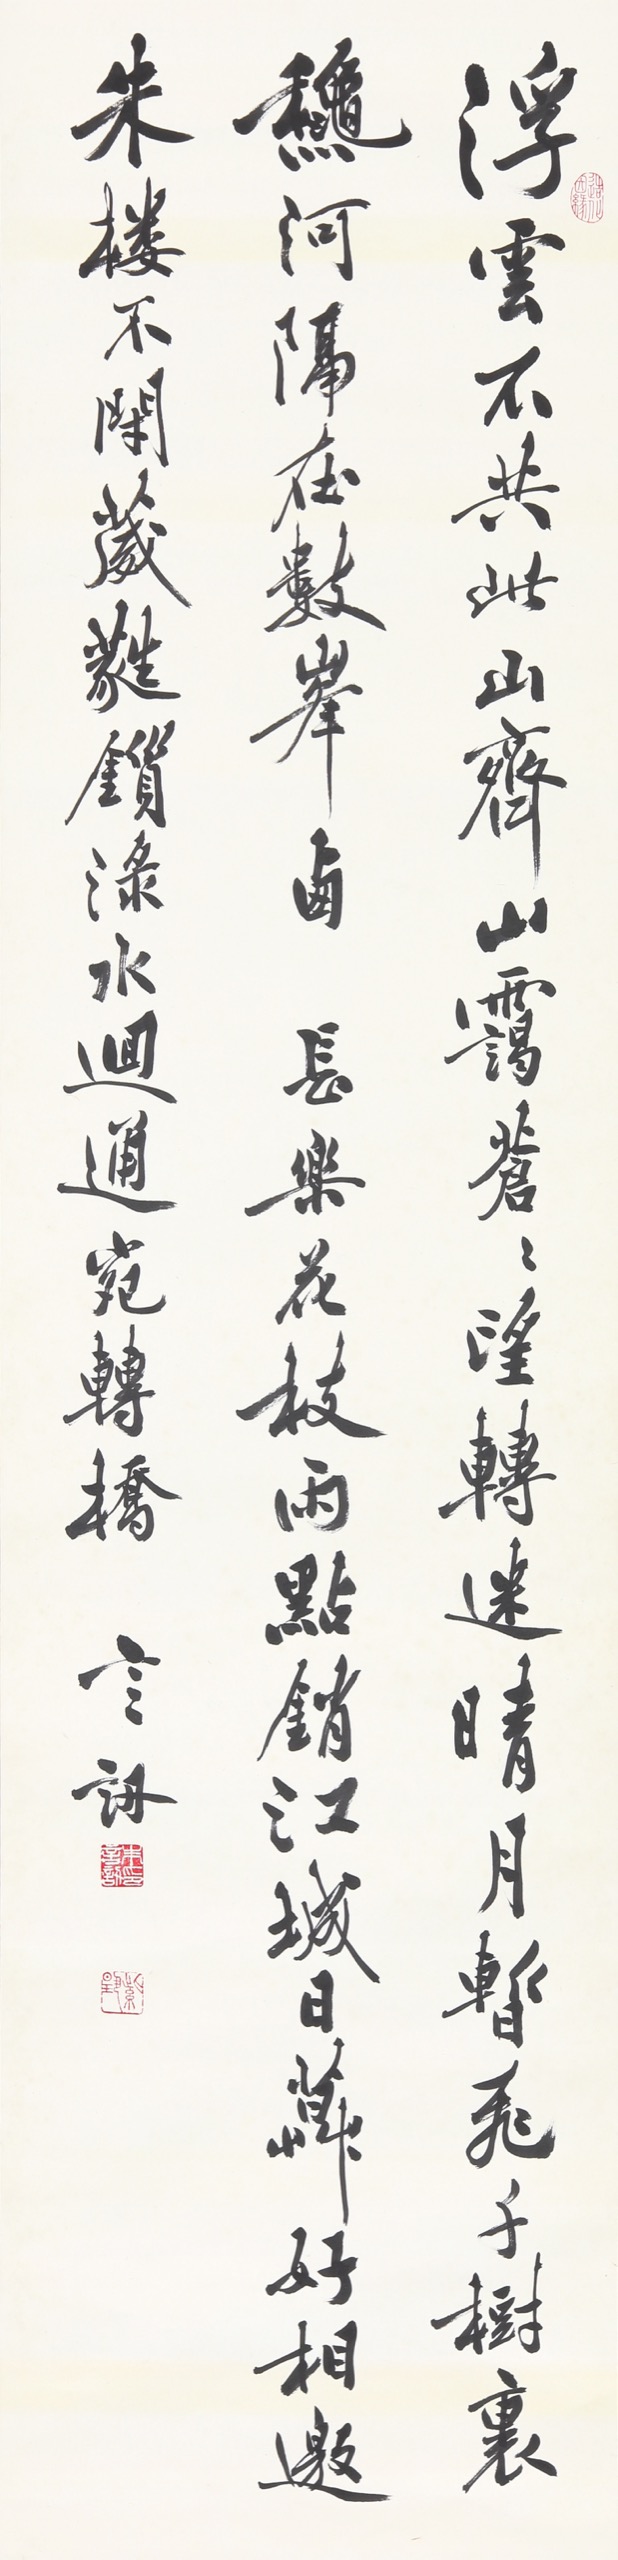 浮雲不共此山齊山靄蒼〻望轉迷晴月暫飛千樹裏
龝河隔在數峯卥 長樂花枝雨點銷江城日莫好相邀
朱楼不閉葳蕤鎖渌水迴通宛轉橋